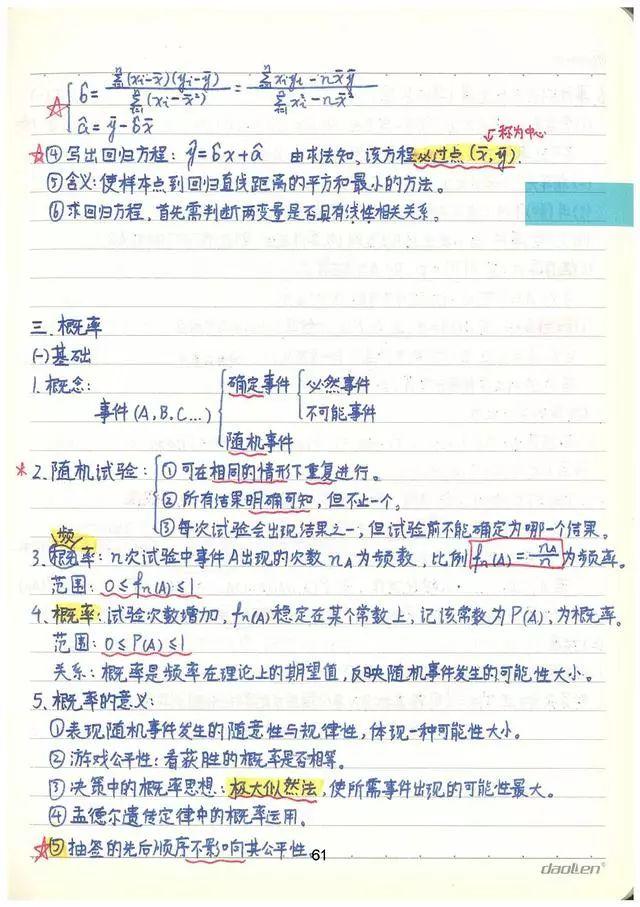 b̂ = Σ(i=1..n)(xi-x̄)(yi-ȳ) / Σ(i=1..n)(xi-x̄²) = Σ(i=1..n)xiyi-nx̄ȳ / Σ(i=1..n)xi²-nx̄²
â = ȳ-b̂x̄
称为中心
☆④写出回归方程: ŷ=b̂x+â 由求法知、该方程必过点(x̄,ȳ).
⑤含义:使样本点到回归直线距离的平方和最小的方法。
⑥求回归方程,首先需判断两变量是否具有线性相关关系。
三.概率
(一)基础
1.概念:
事件(A,B,C...) { 确定事件 { 必然事件
不可能事件
随机事件
*2.随机试验: { ①可在相同的情形下重复进行。
②所有结果明确可知,但不止一个。
③每次试验会出现结果之一,但试验前不能确定为哪一个结果。
频
3.概率:n次试验中事件A出现的次数nA为频数,比例fn(A)=nA/n为频率。
范围:0≤fn(A)≤1
4.概率:试验次数增加,fn(A)稳定在某个常数上,记该常数为P(A),为概率。
范围:0≤P(A)≤1
关系:概率是频率在理论上的期望值,反映随机事件发生的可能性大小。
5.概率的意义:
①表现随机事件发生的随意性与规律性,体现一种可能性大小。
②游戏公平性:看获胜的概率是否相等。
③决策中的概率思想:极大似然法,使所需事件出现的可能性最大。
④孟德尔遗传定律中的概率运用。
☆⑤抽签的先后顺序不影响其公平性。
61
daolen®